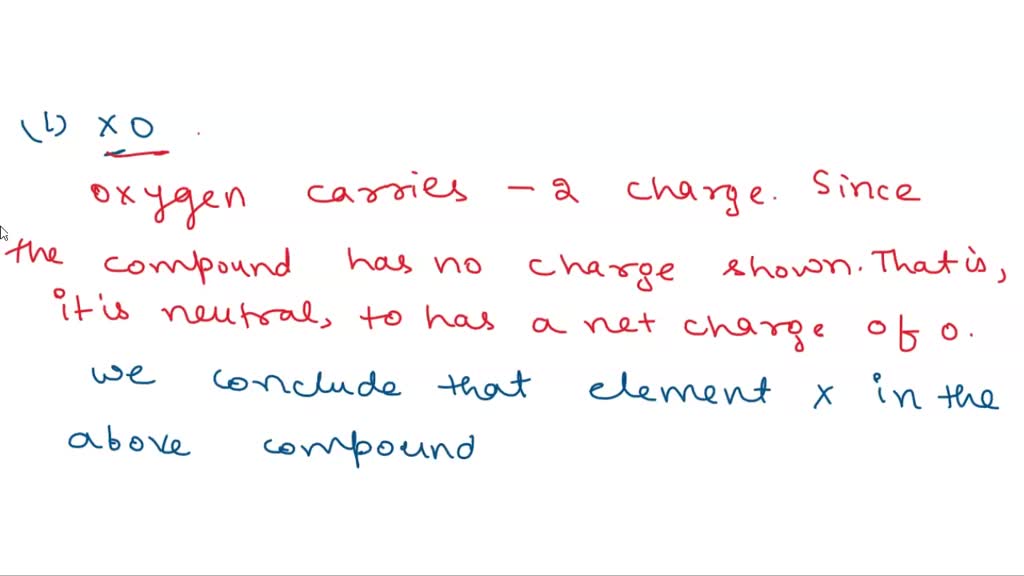 (b) XO
oxygen carries -2 charge. Since
the compound has no charge shown. That is,
it is neutral, to has a net charge of 0.
we conclude that element x in the
above compound